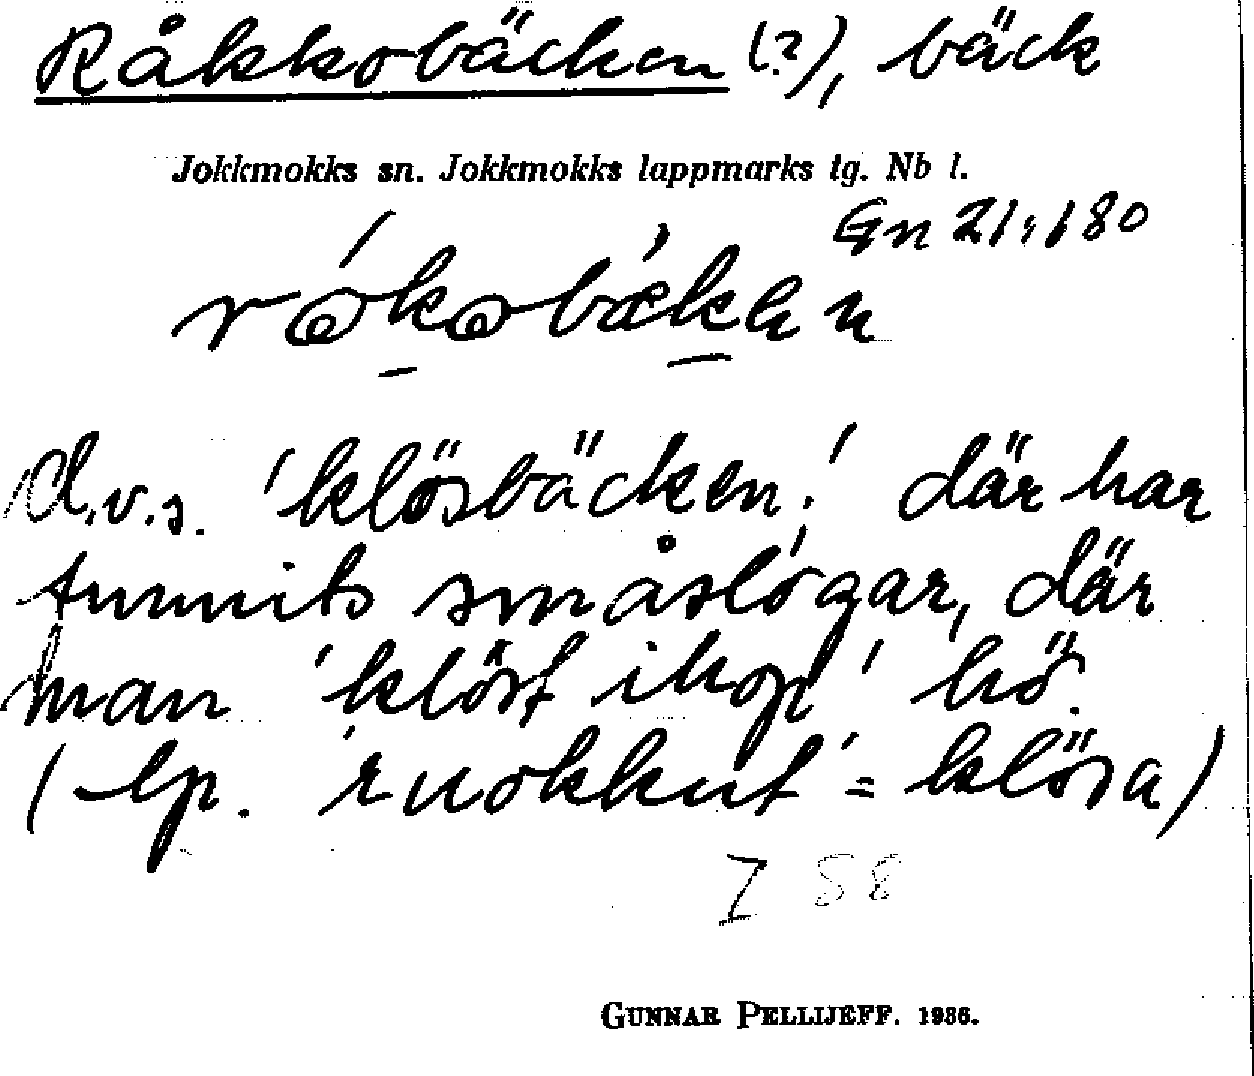 Råkkobäcken (?), bäck
Jokkmokks sn. Jokkmokks lappmarks tg. Nb l.
Gn 21:180
d.v.s. 'klösbäcken' där har
funnits småslógar, där
man 'klöst ihop' hö.
(lp. 'ruokkut' = klösa)
I 58
GUNNAR PELLIJEFF. 1936.